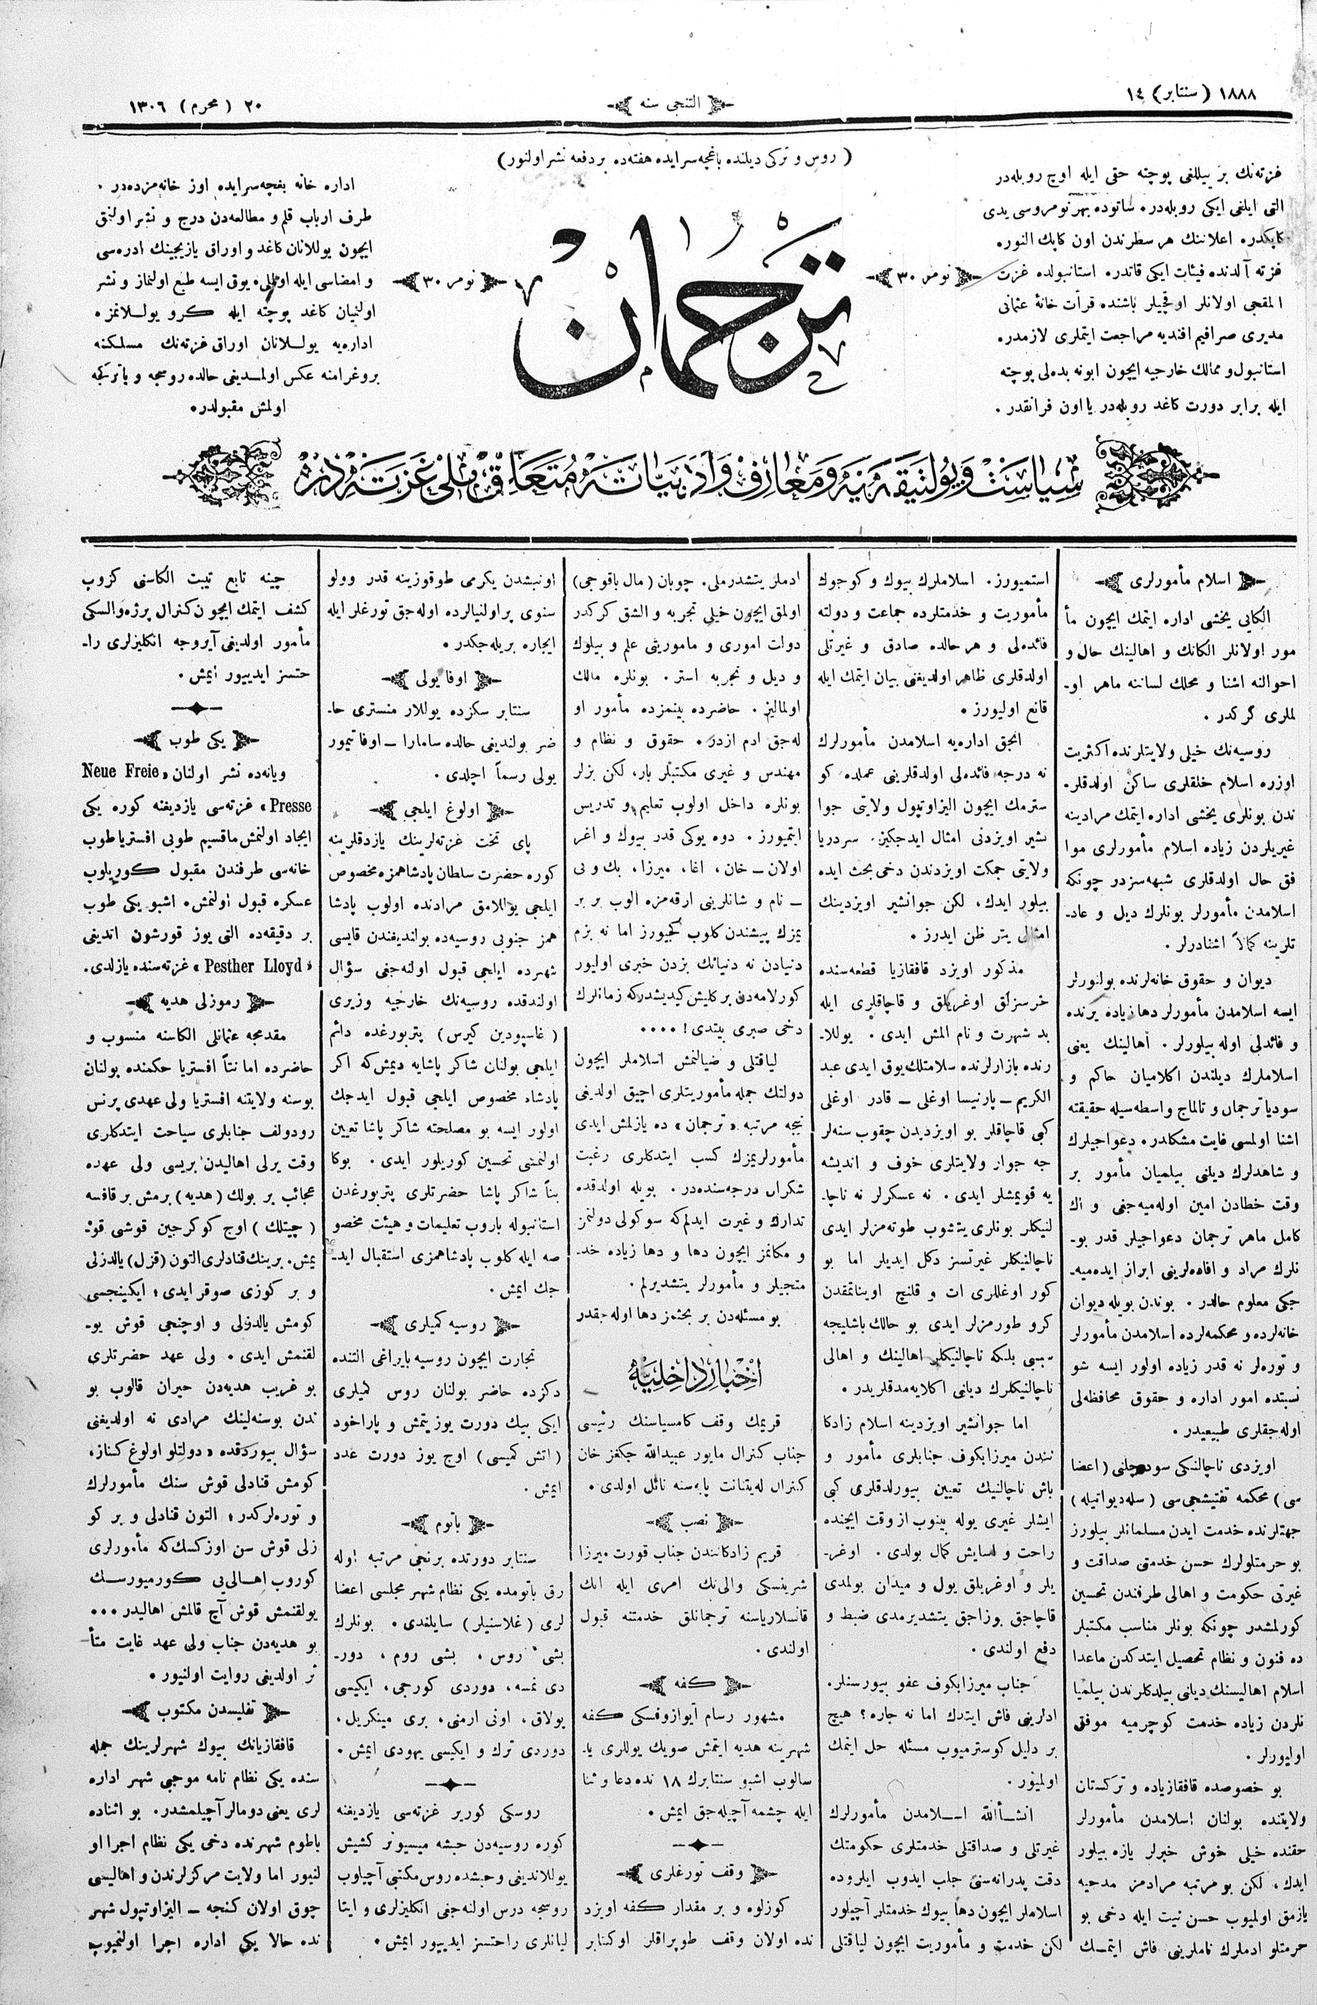 ١٨٨٨ (سنتابر) ١٤
التنجى سنه
٢٠ (محرم) ١٣٠٦
(روس و تركى ديلنده باغچه سرايده هفته ده بر دفعه نشر اولنور)
غزته نك بر ييللغى پوچته حقى ايله اوچ روبله در
التى ايلغى ايكى روبله در. ساتوده بهر نومروسى يدى
كاپكدر. اعلاننك هر سطرندن اون كاپك النور.
غزته آلدنده فيئات ايكى قاتدر. استانبولده غزت
المقجى اولانلر اوقچيلر باشنده قرأت خانۀ عثمانى
مديرى صرافيم افنديه مراجعت ايتملرى لازمدر.
استانبول و ممالك خارجيه ايچون ابونه بدەلى پوچته
ايله برابر دورت كاغد روبله در يا اون فرانقدر.
نومر ٣٠
ترجمان
نومر ٣٠
اداره خانه بغچه سرايده اوز خانه مزده در.
طرف ارباب قلم و مطالعه دن درج و نشر اولنمق
ايچون يوللانان كاغد و اوراق يازيجينك ادره سى
و امضاسى ايله اولملى. يوق ايسه طبع اولنماز و نشر
اولنميان كاغد پوچته ايله كرو يوللانمز.
اداره يه يوللانان اوراق غزته نك مسلكنه
بروغرامنه عكس اولمديغى حالده روسجه و يا تركجه
اولمش مقبولدر.
سياست و پولتيقه منيه و معارف و ادبياته متعلق مللى غزته در
اسلام مأمورلرى
الكايى يخشى اداره ايتمك ايچون مأ
مور اولانلر الكانك و اهالينك حال و
احوالنه اشنا و محلك لساننه ماهر او-
لملرى گركدر.
روسيه نك خيلى ولايتلرنده اكثريت
اوزره اسلام خلقلرى ساكن اولدقلر.
ندن بونلرى يخشى اداره ايتمك مرادينه
غيريلردن زياده اسلام مأمورلرى موا
فق حال اولدقلرى شبهه سزدر چونكه
اسلامدن مأمورلر بونلرك ديل و عاد-
تلرينه كمالاً اشنادرلر.
ديوان و حقوق خانه لرنده بولنورلر
ايسه اسلامدن مأمورلر دها زياده يرنده
و فائدلى اوله بيلورلر. اهالينك يعنى
اسلاملرك ديلندن اكلاميان حاكم و
سوديا ترجمان و تالماج واسطه سيله حقيقته
اشنا اولمسى غايت مشكلدر. دعواجيلرك
و شاهدلرك ديلنى بيلميان مأمور بر
وقت خطادن امين اوله ميه جغى و اڭ
كامل ماهر ترجمان دعواجيلر قدر بو-
نلرك مراد و افاده لرينى ابراز ايده ميه-
جكى معلوم حالدر. بوندن بويله ديوان
خانه لرده و محكمه لرده اسلامدن مأمورلر
و توره لر نه قدر زياده اولور ايسه شو
نسبتده امور اداره و حقوق محافظه لى
اوله جقلرى طبيعيدر.
اويزدى ناچالنكى سودجلنى (اعضا
سى) محكمه تفتيشجى سى (سله دواتيله)
جهتلرنده خدمت ايدن مسلمانلر بيلورز
بو حرمتلولرك حسن خدمتى صداقت و
غيرتى حكومت و اهالى طرفندن تحسين
كورلمشدر چونكه بونلر مناسب مكتبلر
ده فنون و نظام تحصيل ايتدكدن ماعدا
اسلام اهاليسنك ديلنى بيلدكلرندن بيلميا
نلردن زياده خدمت كوچرميه موفق
اوليورلر.
بو خصوصده قافقازياده و تركستان
ولايتنده بولنان اسلامدن مأمورلر
حقنده خيلى خوش خبرلر يازه بيلور
ايدك، لكن بو مرتبه مرادمز مدحيه
يازمق اولميوب حسن نيت ايله دخى بو
حرمتلو ادملرك ناملرينى فاش ايتمك
استميورز. اسلاملرك بيوك و كوچوك
مأموريت و خدمتلرده جماعت و دولته
فائده لى و هر حالده صادق و غيرتلى
اولدقلرى ظاهر اولديغنى بيان ايتمك ايله
قانع اوليورز.
انجق اداره يه اسلامدن مأمورلرك
نه درجه فائده لى اولدقلرينى عملده كو
سترمك ايچون اليزاوتپول ولايتى جوا
نشير اويزدنى امثال ايدجكيز. سردريا
ولايتى جمكت اويزدندن دخى بحث ايده
بيلور ايدك، لكن جوانشير اويزدينك
امثالى يتر ظن ايدرز.
مذكور اويزد قافقازيا قطعه سنده
خرسزلق اوغريلق و قاچاقلرى ايله
بد شهرت و نام المش ايدى. يوللا-
رنده بازارلرنده سلامتلك يوق ايدى عبد
الكريم — پارنيسا اوغلى — قادر اوغلى
كبى قاچاقلر بو اويزديدن چقوب سنه لر
جه جوار ولايتلرى خوف و انديشه
يه قويمشلر ايدى. نه عسكرلر نه ناچا-
لنيكلر بونلرى يتشوب طوته مزلر ايدى
ناچالنيكلر غيرتسز دكل ايديلر اما بو
كور اوغللرى ات و قلنچ اويناتمقدن
كرو طورمزلر ايدى بو حالك باشليجه
سببى بلكه ناچالنيكلر اهالينك و اهالى
ناچالنيكلرك ديلنى اكلايه مدقلريدر.
اما جوانشير اويزدينه اسلام زادكا
نندن ميرزابكوف جنابلرى مأمور و
باش ناچالنيك تعيين بيورلدقلرى كبى
ايشلر غيرى يوله بينوب از وقت ايچنده
راحت و اسايش كمال بولدى. اوغر-
يلر و اوغريلق يول و ميدان بولمدى
قاچاجق بوزاجق يتشديرمدى ضبط و
دفع اولندى.
جناب ميرزابكوف عفو بيورسنلر.
ادلرينى فاش ايتدك اما نه جاره؟ هيچ
بر دليل كوسترميوب مسئله حل ايتمك
اولميور.
انشأالله اسلامدن مأمورلرك
غيرتلى و صداقتلى خدمتلرى حكومتك
دقت پدرانه سنى جلب ايدوب ايلروده
اسلاملر ايچون دها بيوك خدمتلر آچيلور
لكن خدمت و مأموريت ايچون لياقتلى
ادملر يتشدرملى. چوبان (مال باقوجى)
اولمق ايچون خيلى تجربه و الشق كركدر
دولت امورى و ماموريتى علم و بيلوك
و ديل و تجربه استر. بونلره مالك
اولماليز. حاضرده بينمزده مأمور او
له جق ادم ازدر. حقوق و نظام و
مهندس و غيرى مكتبلر بار، لكن بزلر
بونلره داخل اولوب تعليم و تدريس
ايتميورز. دوه يوكى قدر بيوك و اغر
اولان — خان، اغا، ميرزا، بك و بى
— نام و شانلرينى ارقه مزه الوب بر بر
يمزك پيشندن كلوب كچيورز اما نه بزم
دنيادن نه دنيانك بزدن خبرى اوليور
كورلامه دن بر كليش كيديشدركه زمانلرك
دخى صبرى بيتدى!....
لياقتلى و ضيالنمش اسلاملر ايچون
دولتك جمله مأموريتلرى اچيق اولديغى
نيجه مرتبه «ترجمان» ده يازلمش ايدى
مأمورلريمزك كسب ايتدكلرى رغبت
شكران درجه سنده در. بويله اولدقده
تدارك و غيرت ايدلم كه سوكولى دولتمز
و مكانمز ايچون دها و دها زياده خد-
متجيلر و مأمورلر يتشديرلم.
بو مسئله دن بر بحثمز دها اوله جقدر
اخبار داخليه
قريمك وقف كامسياسنك رئيسى
جناب كنرال مايور عبيدالله جنكز خان
كنرال له يتنانت پايه سنه نائل اولدى.
نصب
قريم زادكانندن جناب قورت ميرزا
شرينسكى والى نك امرى ايله انك
قانسلارياسنه ترجمانلق خدمتنه قبول
اولندى.
كفه
مشهور رسام آيوازوفسكى كفه
شهرينه هديه ايتمش صويك يوللرى يا-
سالوب اشبو سنتابرك ١٨ نده دعا و ثنا
ايله چشمه آچيله جق ايمش.
وقف تورغلرى
كوزلوه و بر مقدار كفه اويزد
نده اولان وقف طوپراقلر اوكتابر
اونبشدن يكرمى طوقوزينه قدر وولو
سنوى پراولنيالرده اوله جق تورغلر ايله
ايجاره بريله جكدر.
اوفا يولى
سنتابر سكزده يوللار منسترى حا-
ضر بولنديغى حالده سامارا — اوفا تيمور
يولى رسماً اچلدى.
اولوغ ايلچى
پاى تخت غزته لرينك يازدقلرينه
كوره حضرت سلطان پادشاهمزه مخصوص
ايلچى يوللامق مرادنده اولوب پادشا
همز جنوبى روسيه ده بولنديغندن قايسى
شهرده ايلچى قبول اولنه جغى سؤال
اولندقده روسيه نك خارجيه وزيرى
(غاسپودين كيرس) پتربورغده دائم
ايلچى بولنان شاكر پاشايه ديمش كه اكر
پادشاه مخصوص ايلچى قبول ايدجك
اولور ايسه بو مصلحته شاكر پاشا تعيين
اولنمشنى تحسين كوريلور ايدى. بوكا
بناً شاكر پاشا حضرتلرى پتربورغدن
استانبوله باروب تعليمات و هيئت مخصو
صه ايله كلوب پادشاهمزى استقبال ايد-
جك ايمش.
روسيه كميلرى
تجارت ايچون روسيه بايراغى التنده
دكزده حاضر بولنان روس كميلرى
ايكى بيك دورت يوز يتمش و پاراخود
(اتش كميسى) اوچ يوز دورت عدد
ايمش.
باتوم
سنتابر دورتده برنجى مرتبه اوله
رق باتومده يكى نظام شهر مجلسى اعضا
لرى (غلاسنيلر) سايلندى. بونلرك
بشى روس، بشى روم، دور-
دى نمسه، دوردى كورجى، ايكيسى
پولاق، اونى ارمنى، برى مينكريل،
دوردى ترك و ايكيسى يهودى ايمش.
روسكى كورير غزته سى يازديغنه
كوره روسيه دن حبشه ميسيونر كشيش
يوللانديغى و حبشده روس مكتبى آچيلوب
روسجه درس اولنه جغى انكليزلرى و ايتا
ليانلرى راحتسز ايديپور ايمش.
چينه تابع تيبت الكاسنى كروب
كشف ايتمك ايچون كنرال پرژه والسكى
مأمور اولديغى آيروجه انكليزلرى را-
حتسز ايدييور ايمش.
يكى طوب
ويانه ده نشر اولنان «Neue Freie
Presse» غزته سى يازديغنه كوره يكى
ايجاد اولنمش ماقسيم طوبى افستريا طوب
خانه سى طرفندن مقبول كوريلوب
عسكره قبول اولنمش. اشبو يكى طوب
بر دقيقه ده التى يوز قورشون اتديغى
«Pesther Lloyd» غزته سنده يازلدى.
رموزلى هديه
مقدمجه عثمانلى الكاسنه منسوب و
حاضرده امانتاً افستريا حكمنده بولنان
بوسنه ولايتنه افستريا ولى عهدى پرنس
رودولف جنابلرى سياحت ايتدكلرى
وقت يرلى اهاليدن بريسى ولى عهده
عجائب بر بولك (هديه) برمش بر قافسه
(چيتلك) اوچ كوكرجين قوشى قو-
يمش. برينك قنادلرى التون (قزل) يالدزلى
و بر كوزى صوقر ايدى؛ ايكينجسى
كومش يالدزلى و اوچنجى قوش يو-
لقنمش ايدى. ولى عهد حضرتلرى
بو غريب هديه دن حيران قالوب بو
ندن بوسنه لينك مرادى نه اولديغنى
سؤال بيوردقده «دولتلو اولوغ كناز،
كومش قنادلى قوش سنك مأمورلرك
و توره لركدر؛ التون قنادلى و بر كو
زلى قوش سن اوزكسك كه مأمورلرى
كوروب اهالى يى كورميورسك
يولقنمش قوش آچ قالمش اهاليدر...
بو هديه دن جناب ولى عهد غايت متأ-
ثر اولديغى روايت اولنيور.
تفليسدن مكتوب
قافقازيانك بيوك شهرلرينك جمله
سنده يكى نظام نامه موجبى شهر اداره
لرى يعنى دومالر آچيلمشدر. بو اثناده
باطوم شهرنده دخى يكى نظام اجرا او
لنيور اما ولايت مركزلرندن و اهاليسى
چوق اولان كنجه — اليزاوتپول شهر
نده حالا يكى اداره اجرا اولنميوب